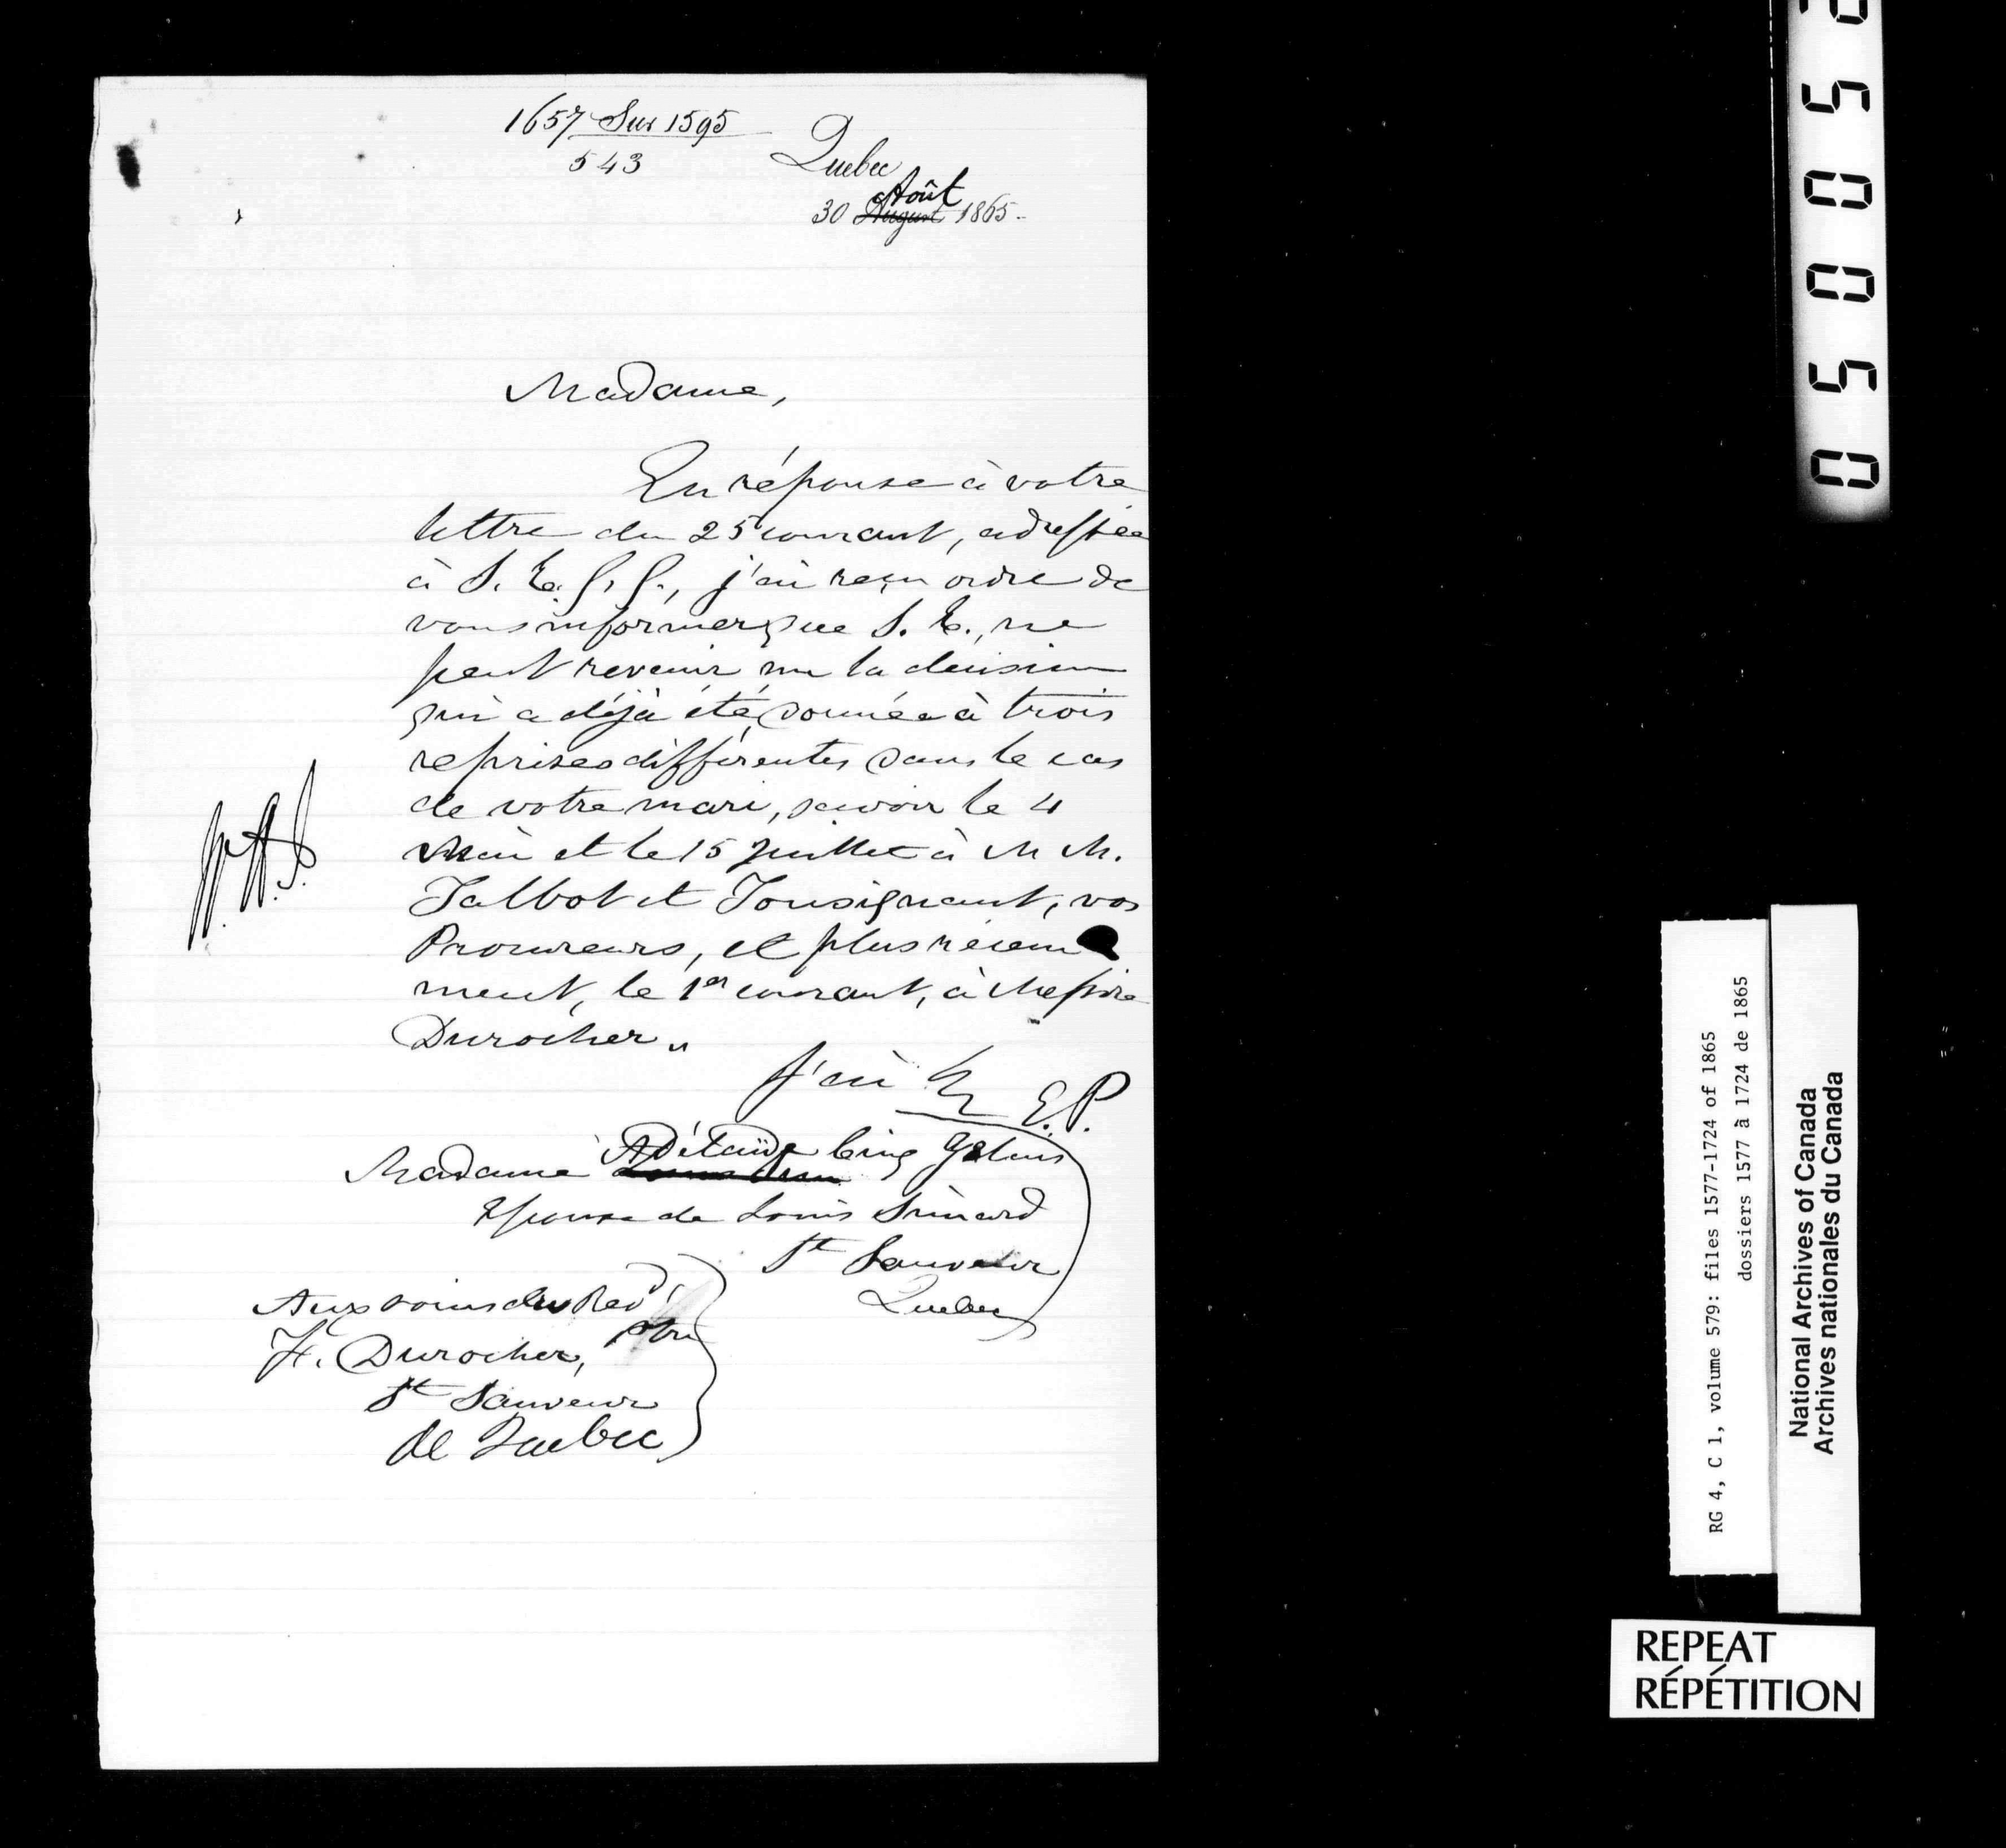 1657 Sur 1595
543
Quebec
Août
30 August 1865.
Madame,
En réponse à votre
lettre du 25 courant, adressée
à S. E. G. G., j'ai reçu ordre de
vous informer que S. E., ne
peut revenir sur la décision
qui a déjà été donnée à trois
reprises différentes dans le cas
de votre mari, savoir le 4
Mai et le 15 Juillet à M M.
Talbot et Tousignant, vos
Procureurs, et plus récem
ment, le 1er courant, à Messire
Durocher.
J'ai
E. P.
Madame Adélaïde Cinq
Epouse de Louis Simard
St Sauveur
Quebec
Aux soins du Revd
F. Durocher, Ptre
St Sauveur
de Quebec
05005
RG 4, C 1, volume 579: files 1577-1724 of 1865
dossiers 1577 à 1724 de 1865
National Archives of Canada
Archives nationales du Canada
REPEAT
RÉPÉTITION